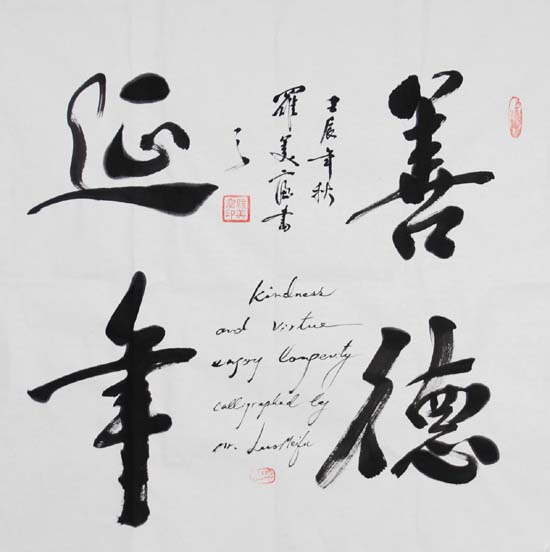 善德
延年
壬辰年秋
羅美富書
kindness
and virtue
enjoy longevity
calligraphed by
mr. Luo Meifu